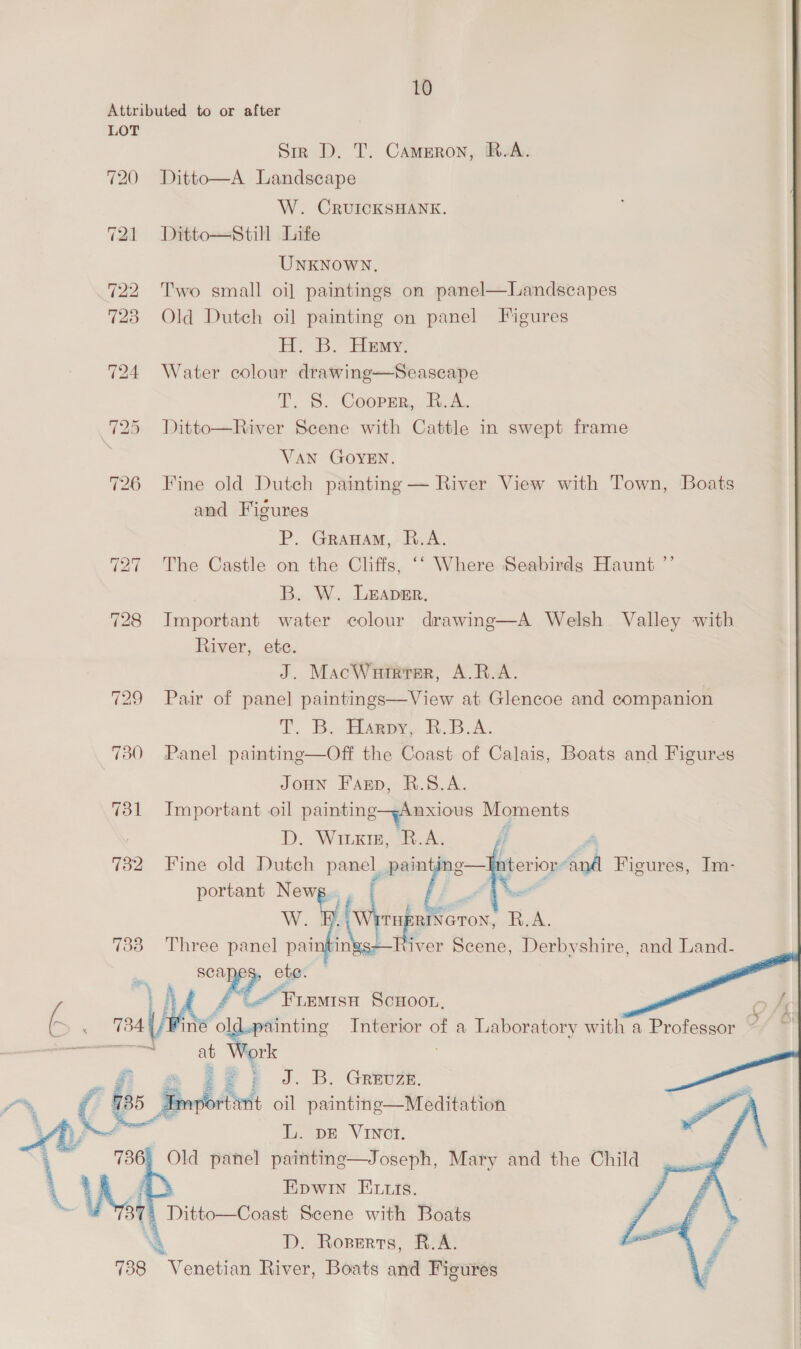 10
Attributed to or after
LOT
Sir D. T. Cameron, R.A.
720 Ditto—A Landscape
W. Cruickshank.
721 Ditto—Still Life
Unknown.
722 Two small oil paintings on panel—Landscapes
723 Old Dutch oil painting on panel Figures
H. B. Hemy.
724 Water colour drawing—Seascape
T. S. Cooper, R.A.
725 Ditto—River Scene with Cattle in swept frame
Van Goyen.
726 Fine old Dutch painting — River View with Town, Boats
and Figures
P. Graham, R.A.
727 The Castle on the Cliffs, “ Where Seabirds Haunt ”
B. W. Leader.
728 Important water colour drawing—A Welsh Valley with
River, etc.
J. MacWhirter, A.R.A.
729 Pair of panel paintings—View at Glencoe and companion
T. B. Hardy, R.B.A.
730 Panel painting—Off the Coast of Calais, Boats and Figures
John Faed, R.S.A.
731 Important oil painting—Anxious Moments
D. Wilkie, R.A.
732 Fine old Dutch panel painting—Interior and Figures, Im-
portant News
W. F. Witherington, R.A.
733 Three panel paintings—River Scene, Derbyshire, and Land-
scapes, etc.
Flemish School.
734 Fine old painting Interior of a Laboratory with a Professor
at Work
J. B. Greuze.
735 Important oil painting—Meditation
L. de Vinci.
736 Old panel painting—Joseph, Mary and the Child
Edwin Ellis.
737 Ditto—Coast Scene with Boats
D. Roberts, R.A.
738 Venetian River, Boats and Figures